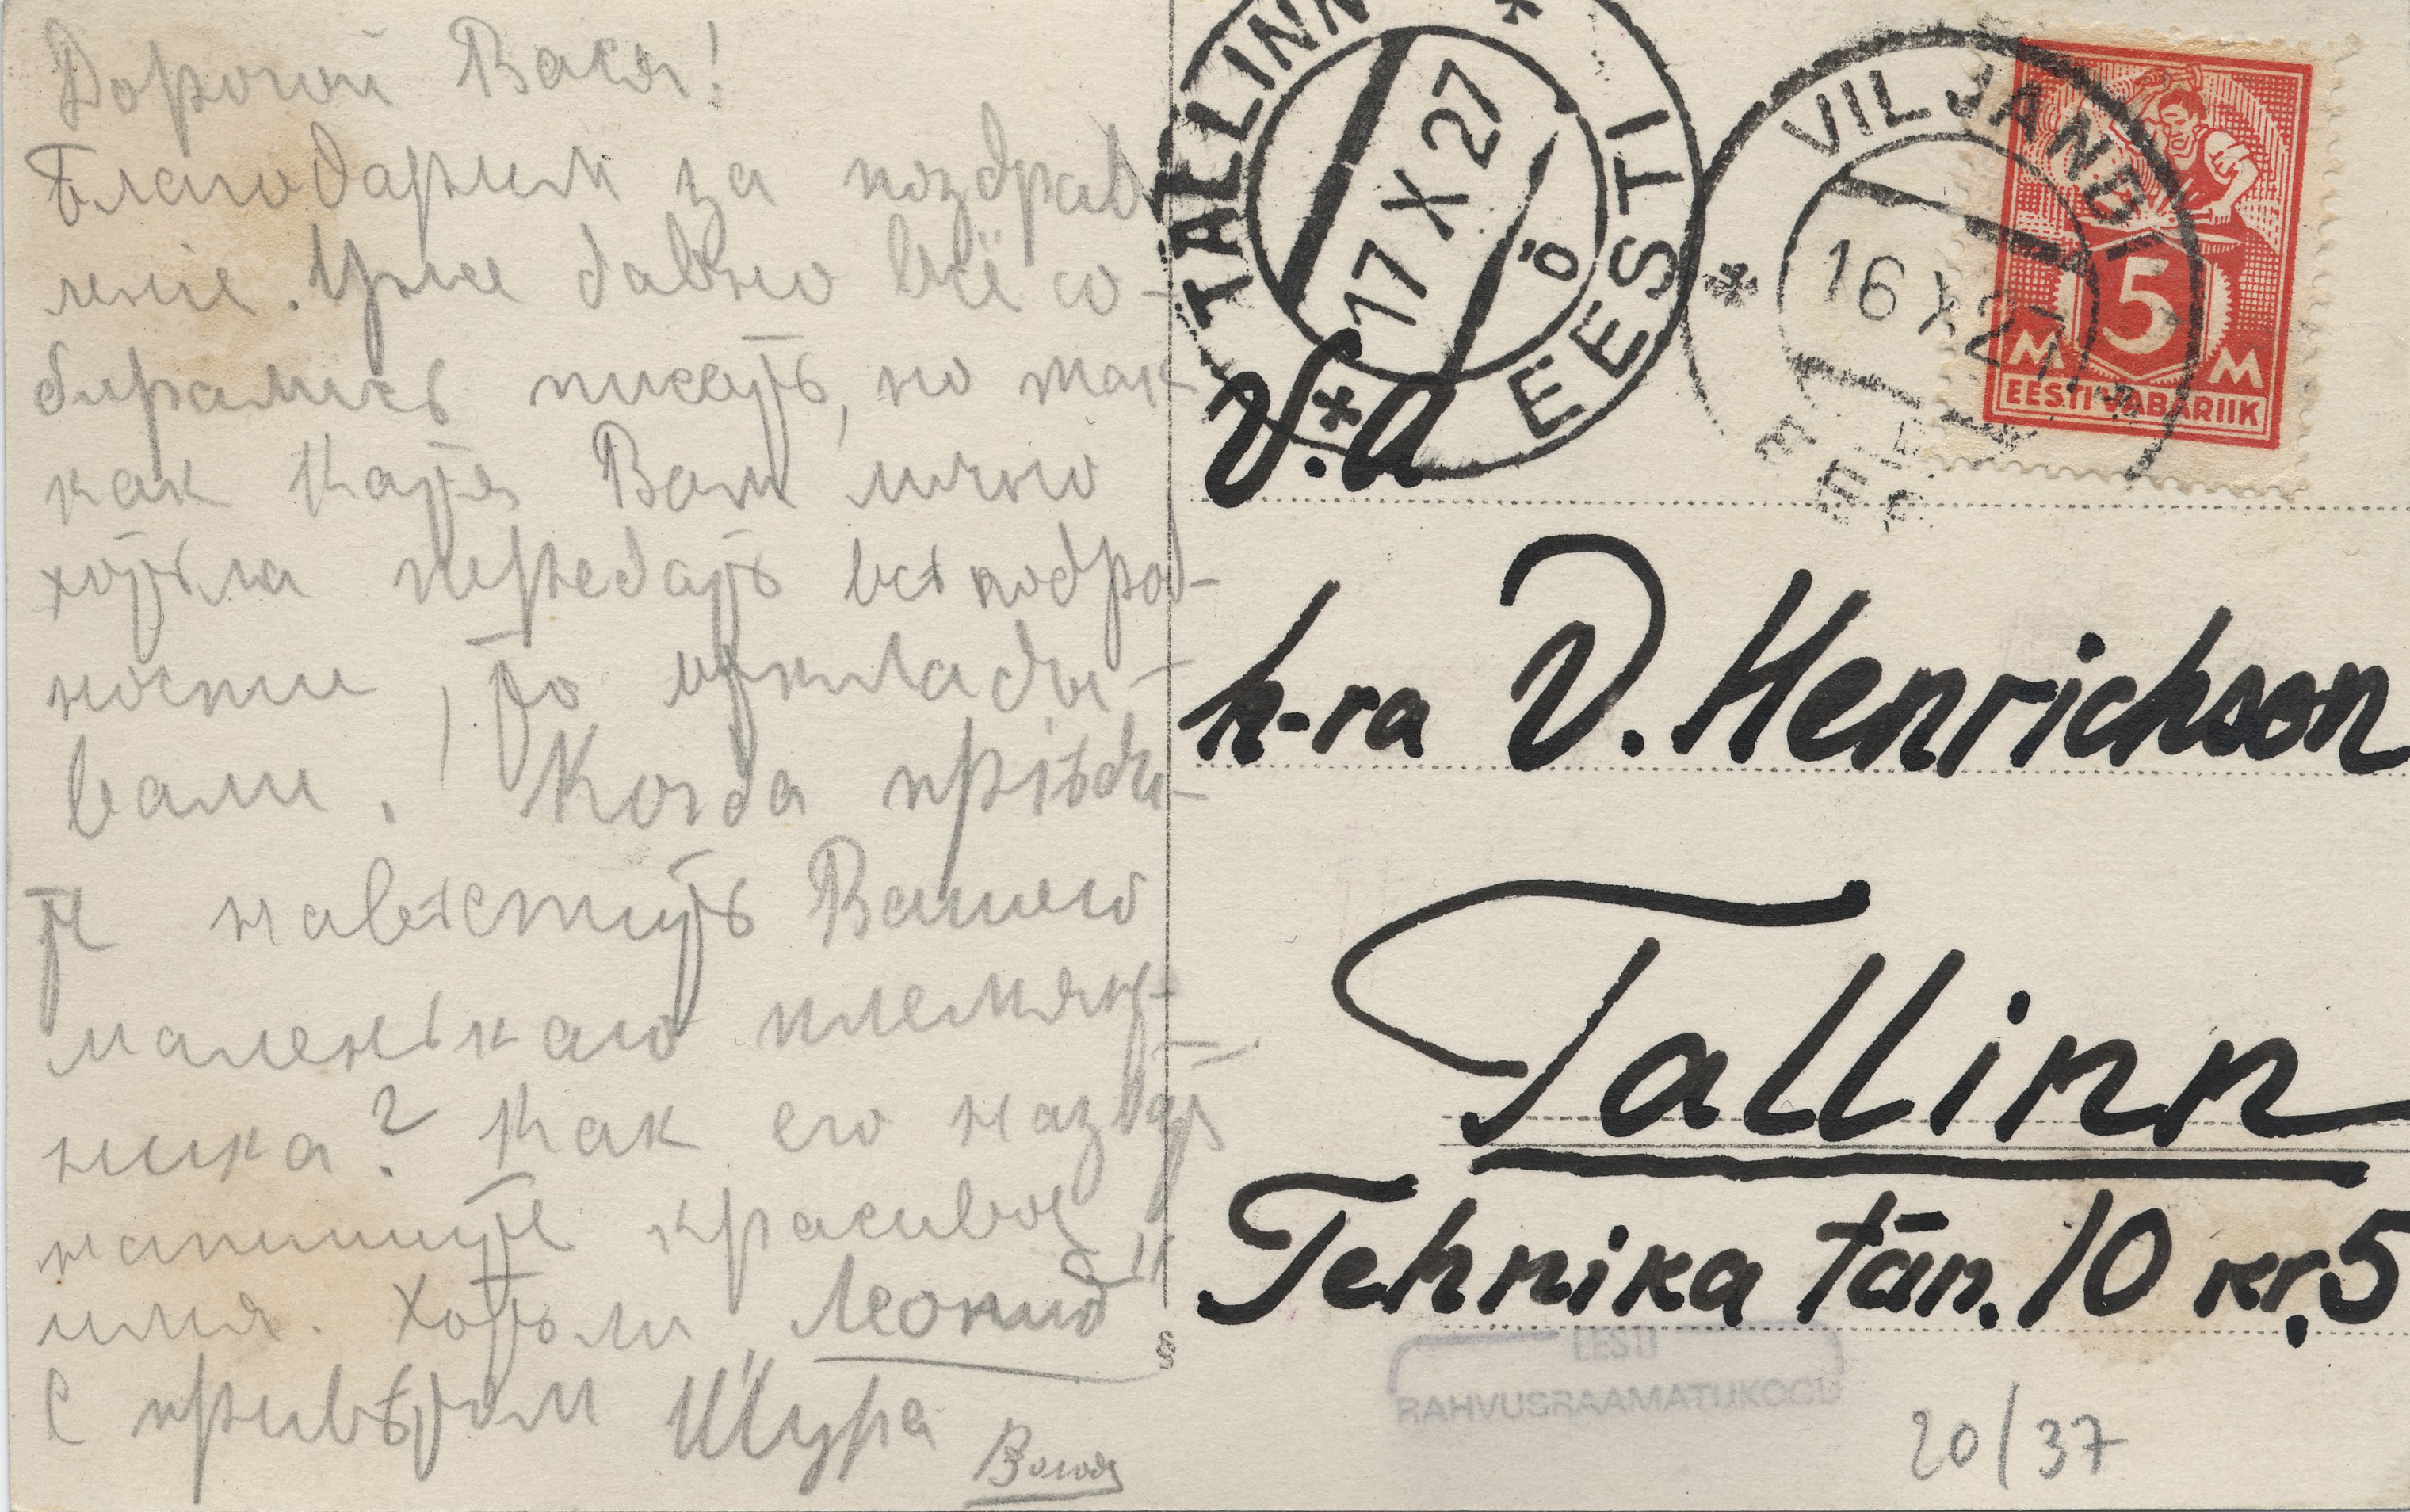 Дорогой Вася!
Благодарим за поздрав
леніе. Уже давно всё со-
бирались писать, но так
как Катя Вам лично
хотѣла передать всѣ подроб-
ности, то откла­ды-
вали. Когда пріѣди-
те навѣстить Вашего
маленькаго племян-
ника? Как его назвать
напишите красивое
имя. Хотѣли Леонид"
С привѣтом Шура
Володя
TALLINN
17 X 27
ö
EESTI
VILJANDI
16 X 27
EESTI
5
M M
EESTI VABARIIK
V.a
h-ra V. Henrichson
Tallinn
Tehnika tän. 10 kr. 5
§
EESTI
RAHVUSRAAMATUKOGU
20/37